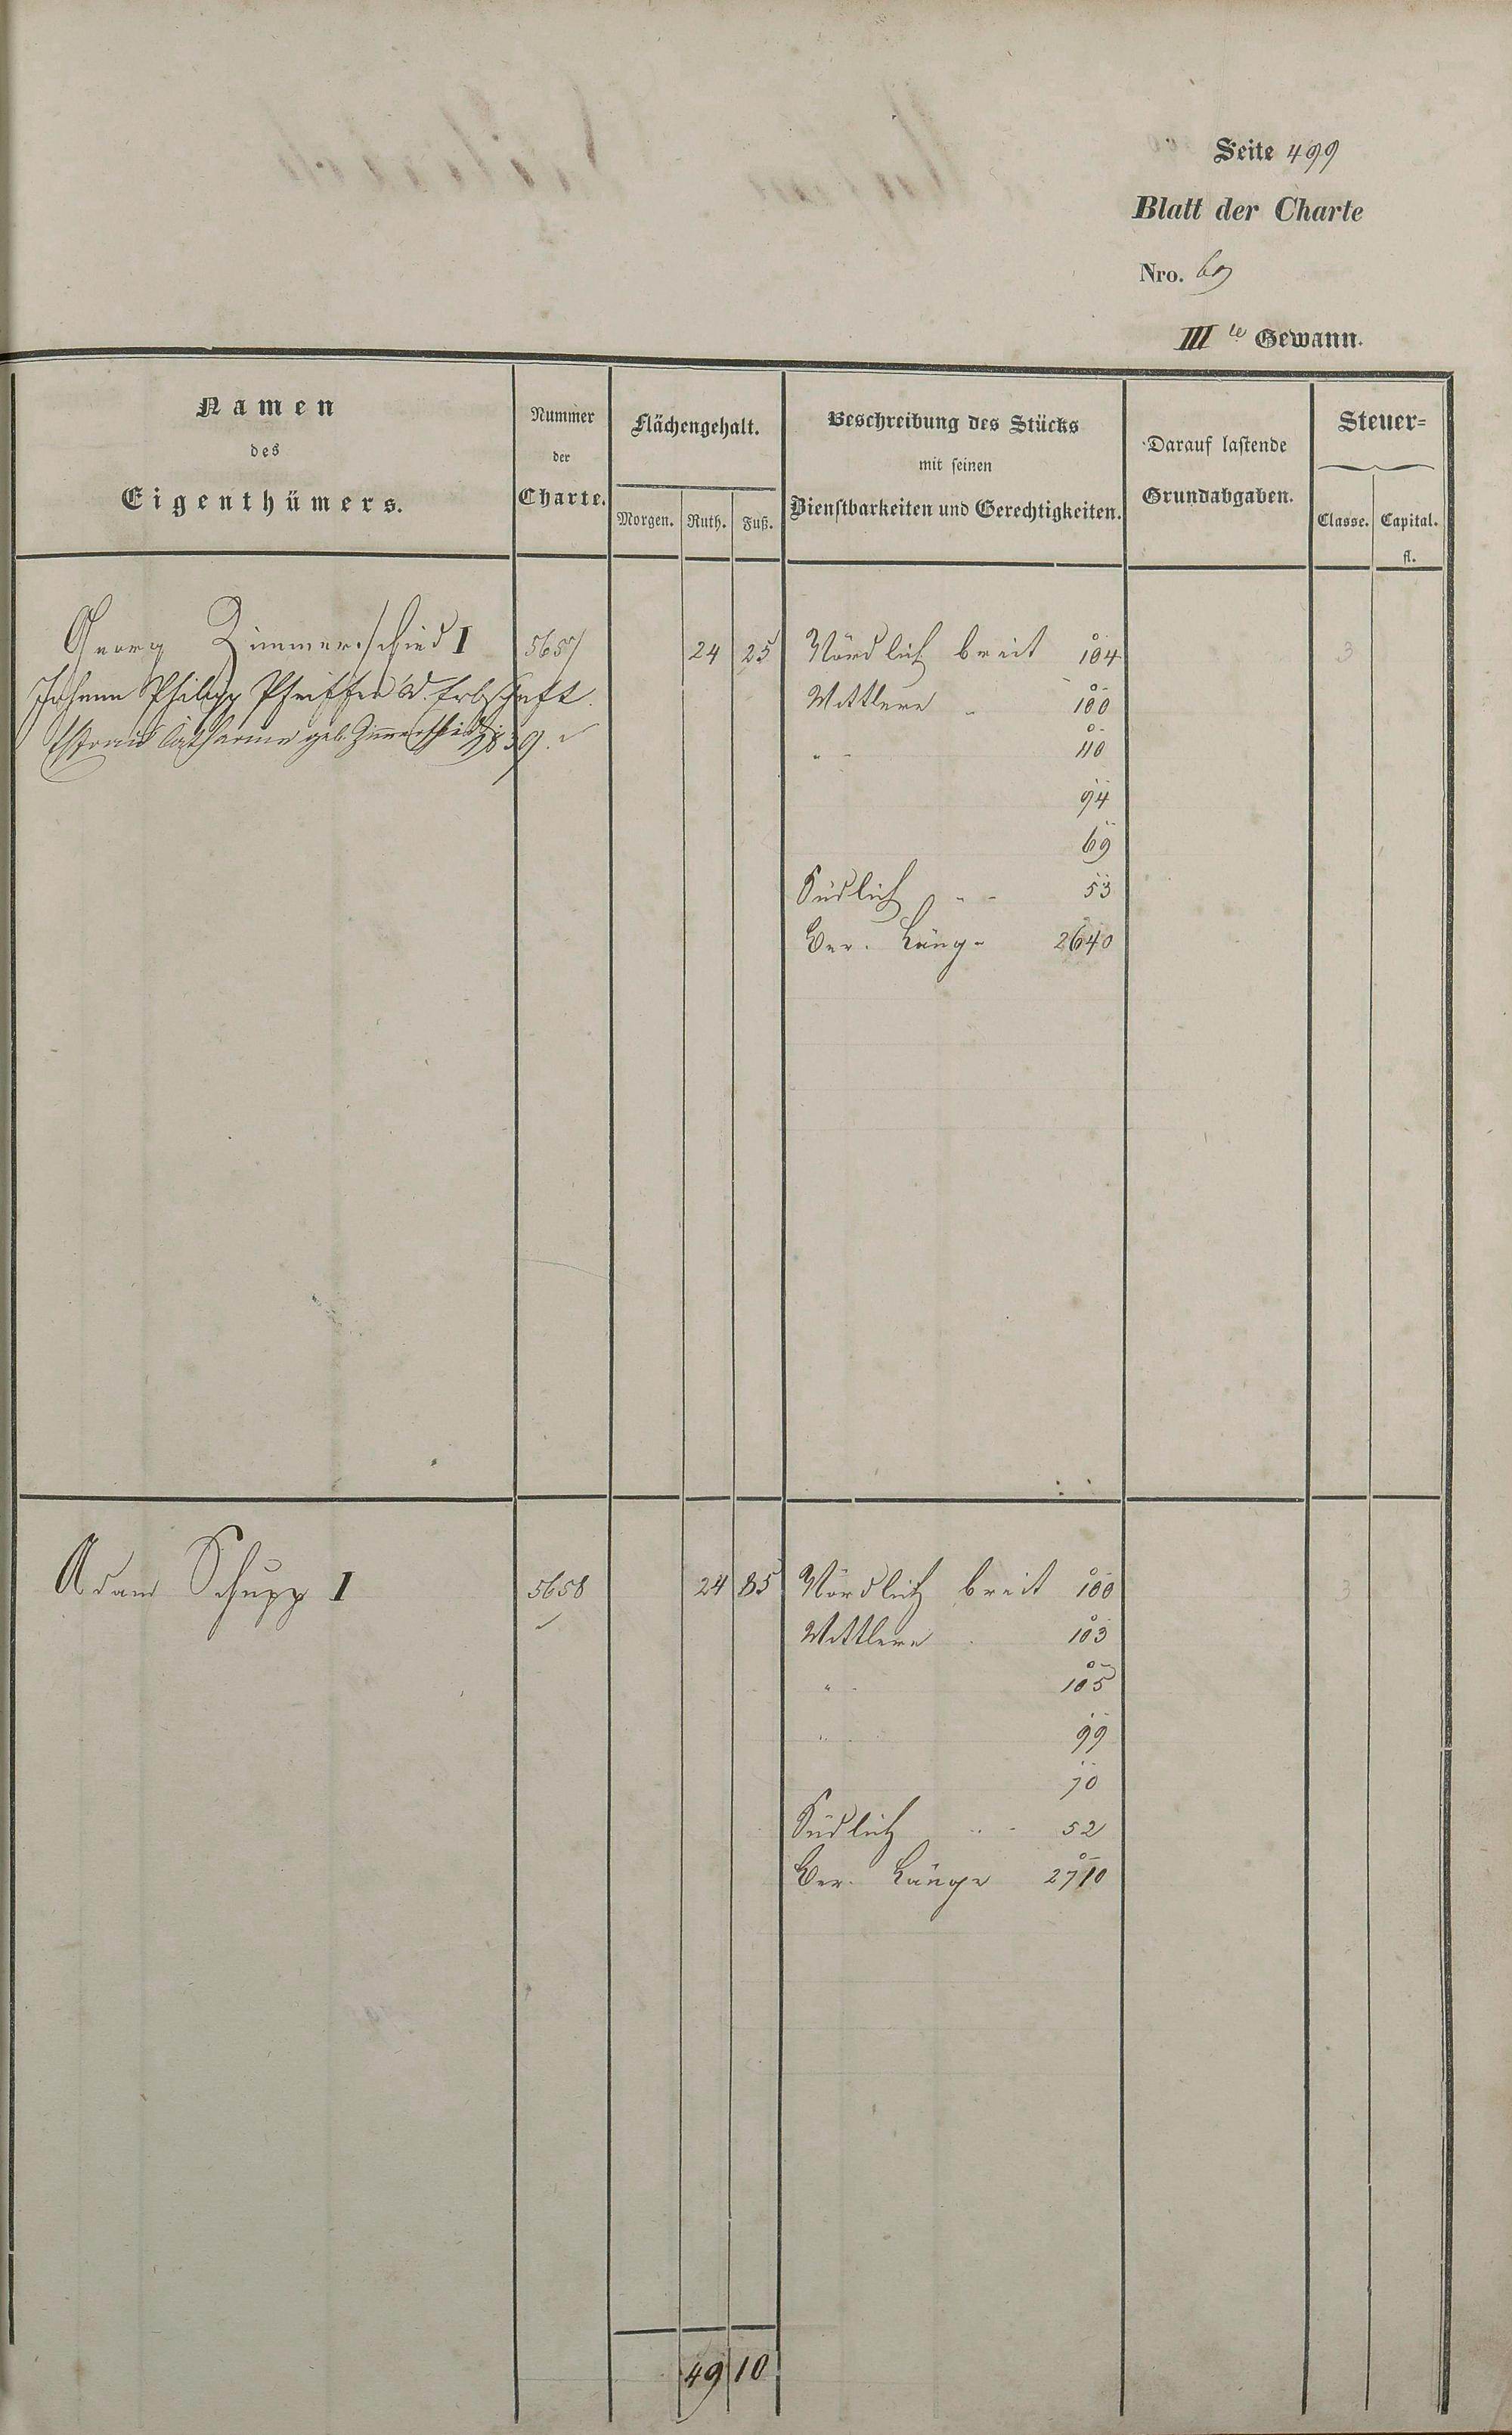 Seite 499
Blatt der Charte
Nro. 69
III te Gewann.
Namen
des
Eigenthümers.
Nummer
der
Charte.
Flächengehalt.
Morgen. Ruth. Fuß.
Beschreibung des Stücks
mit seinen
Dienstbarkeiten und Gerechtigkeiten.
Darauf lastende
Grundabgaben.
Steuer=
Classe. Capital.
fl.
Georg Zimmerschied I 5657 24 25 Nördlich breit 104 3
Johann Philipp Pfeiffer d. Erbschaft. Mittlere 100
Catharine geb. Zimmerschied 1839. " 110
94
69
Südlich " 53
Ber. Länge 2640
Adam Schupp I 5658 24 85 Nördlich breit 100 3
Mittlere 103
" 105
" 99
70
Südlich " 52
Ber. Länge 2710
49 10